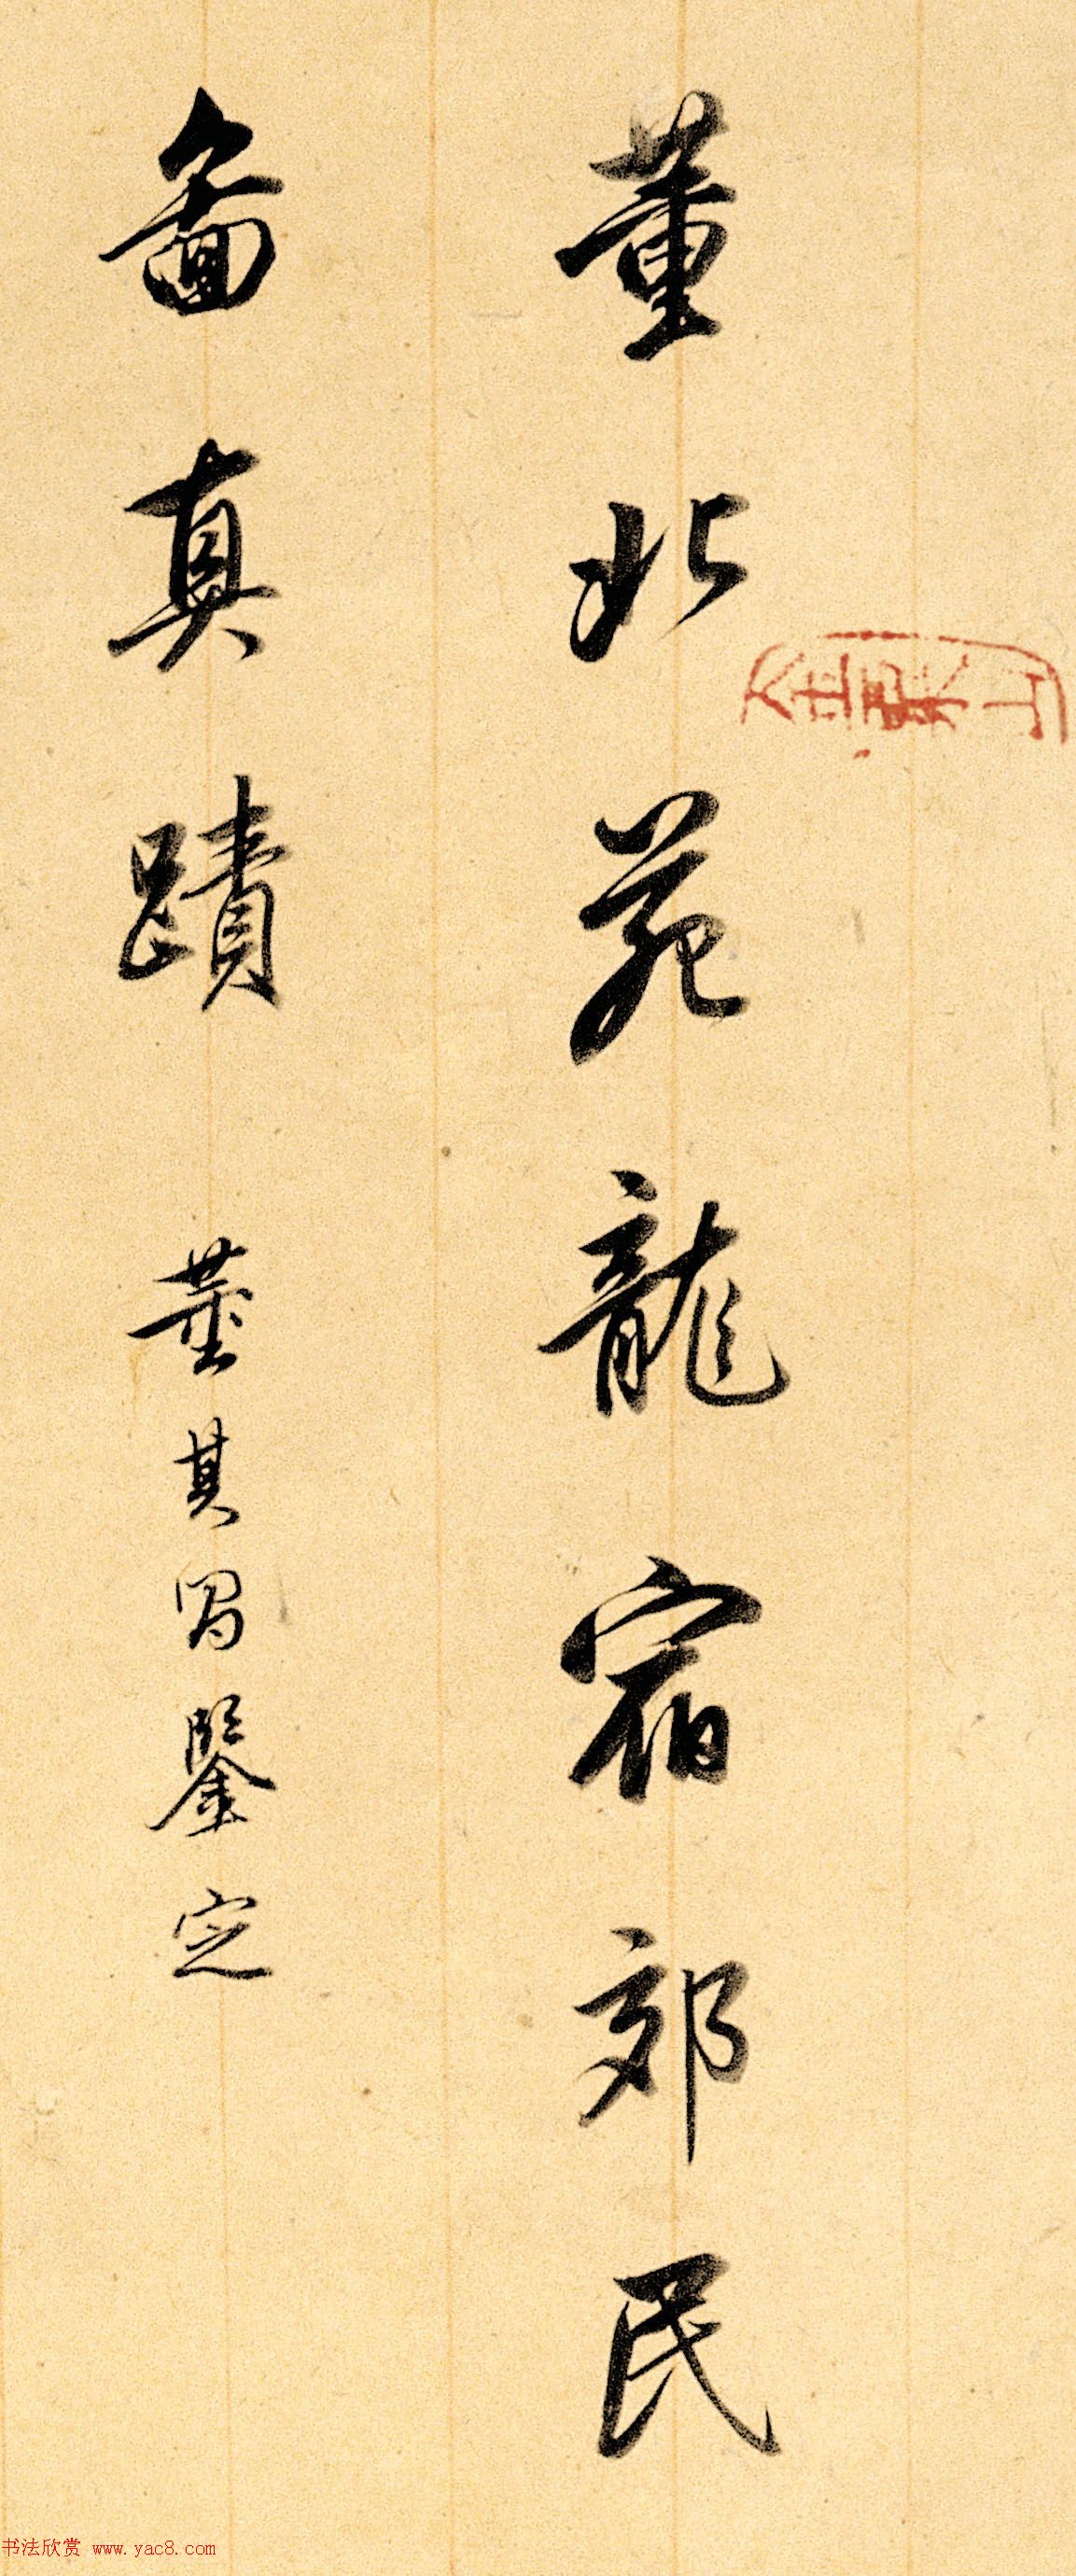 董北苑龍宿郊民
啚真蹟 董其昌鑒定
书法欣赏 www.yac8.com